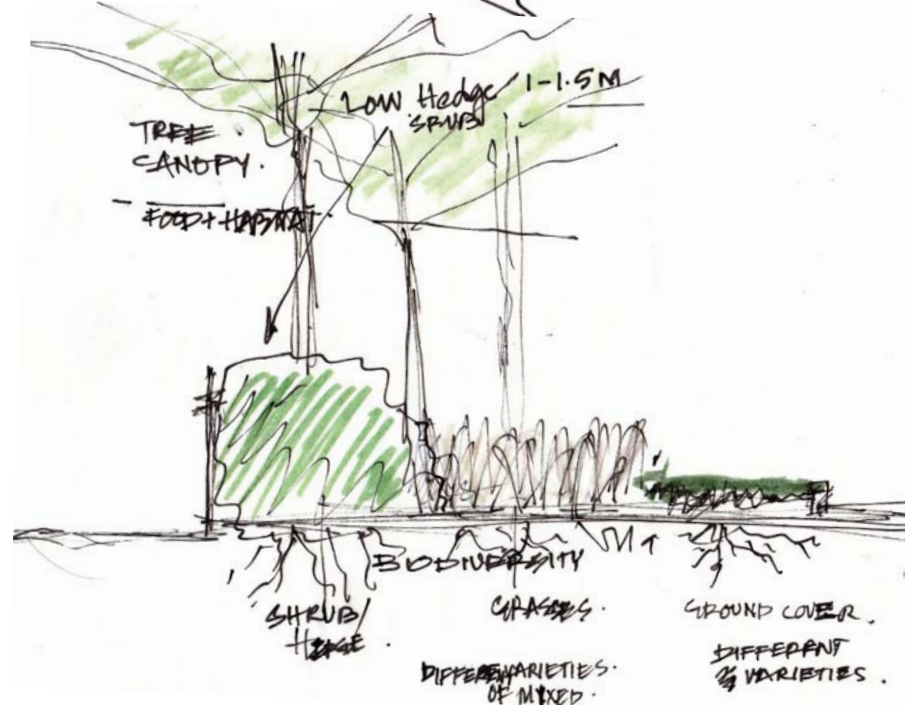 Low Hedge/ 1-1.5M
SRUB
TREE
CANOPY.
FOOD + HABITAT.
BIODIVERSITY
SHRUB/
HEDGE.
GRASSES.
DIFFERENT VARIETIES.
OF MIXED.
GROUND COVER.
DIFFERENT
VARIETIES.